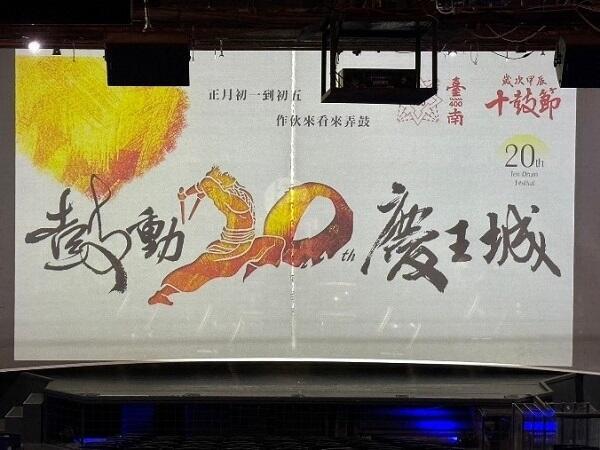 正月初一到初五
作伙來看來弄鼓
臺南
400
歲次甲辰
十鼓節
20th
Ten Drum
Festival
鼓動20th慶王城